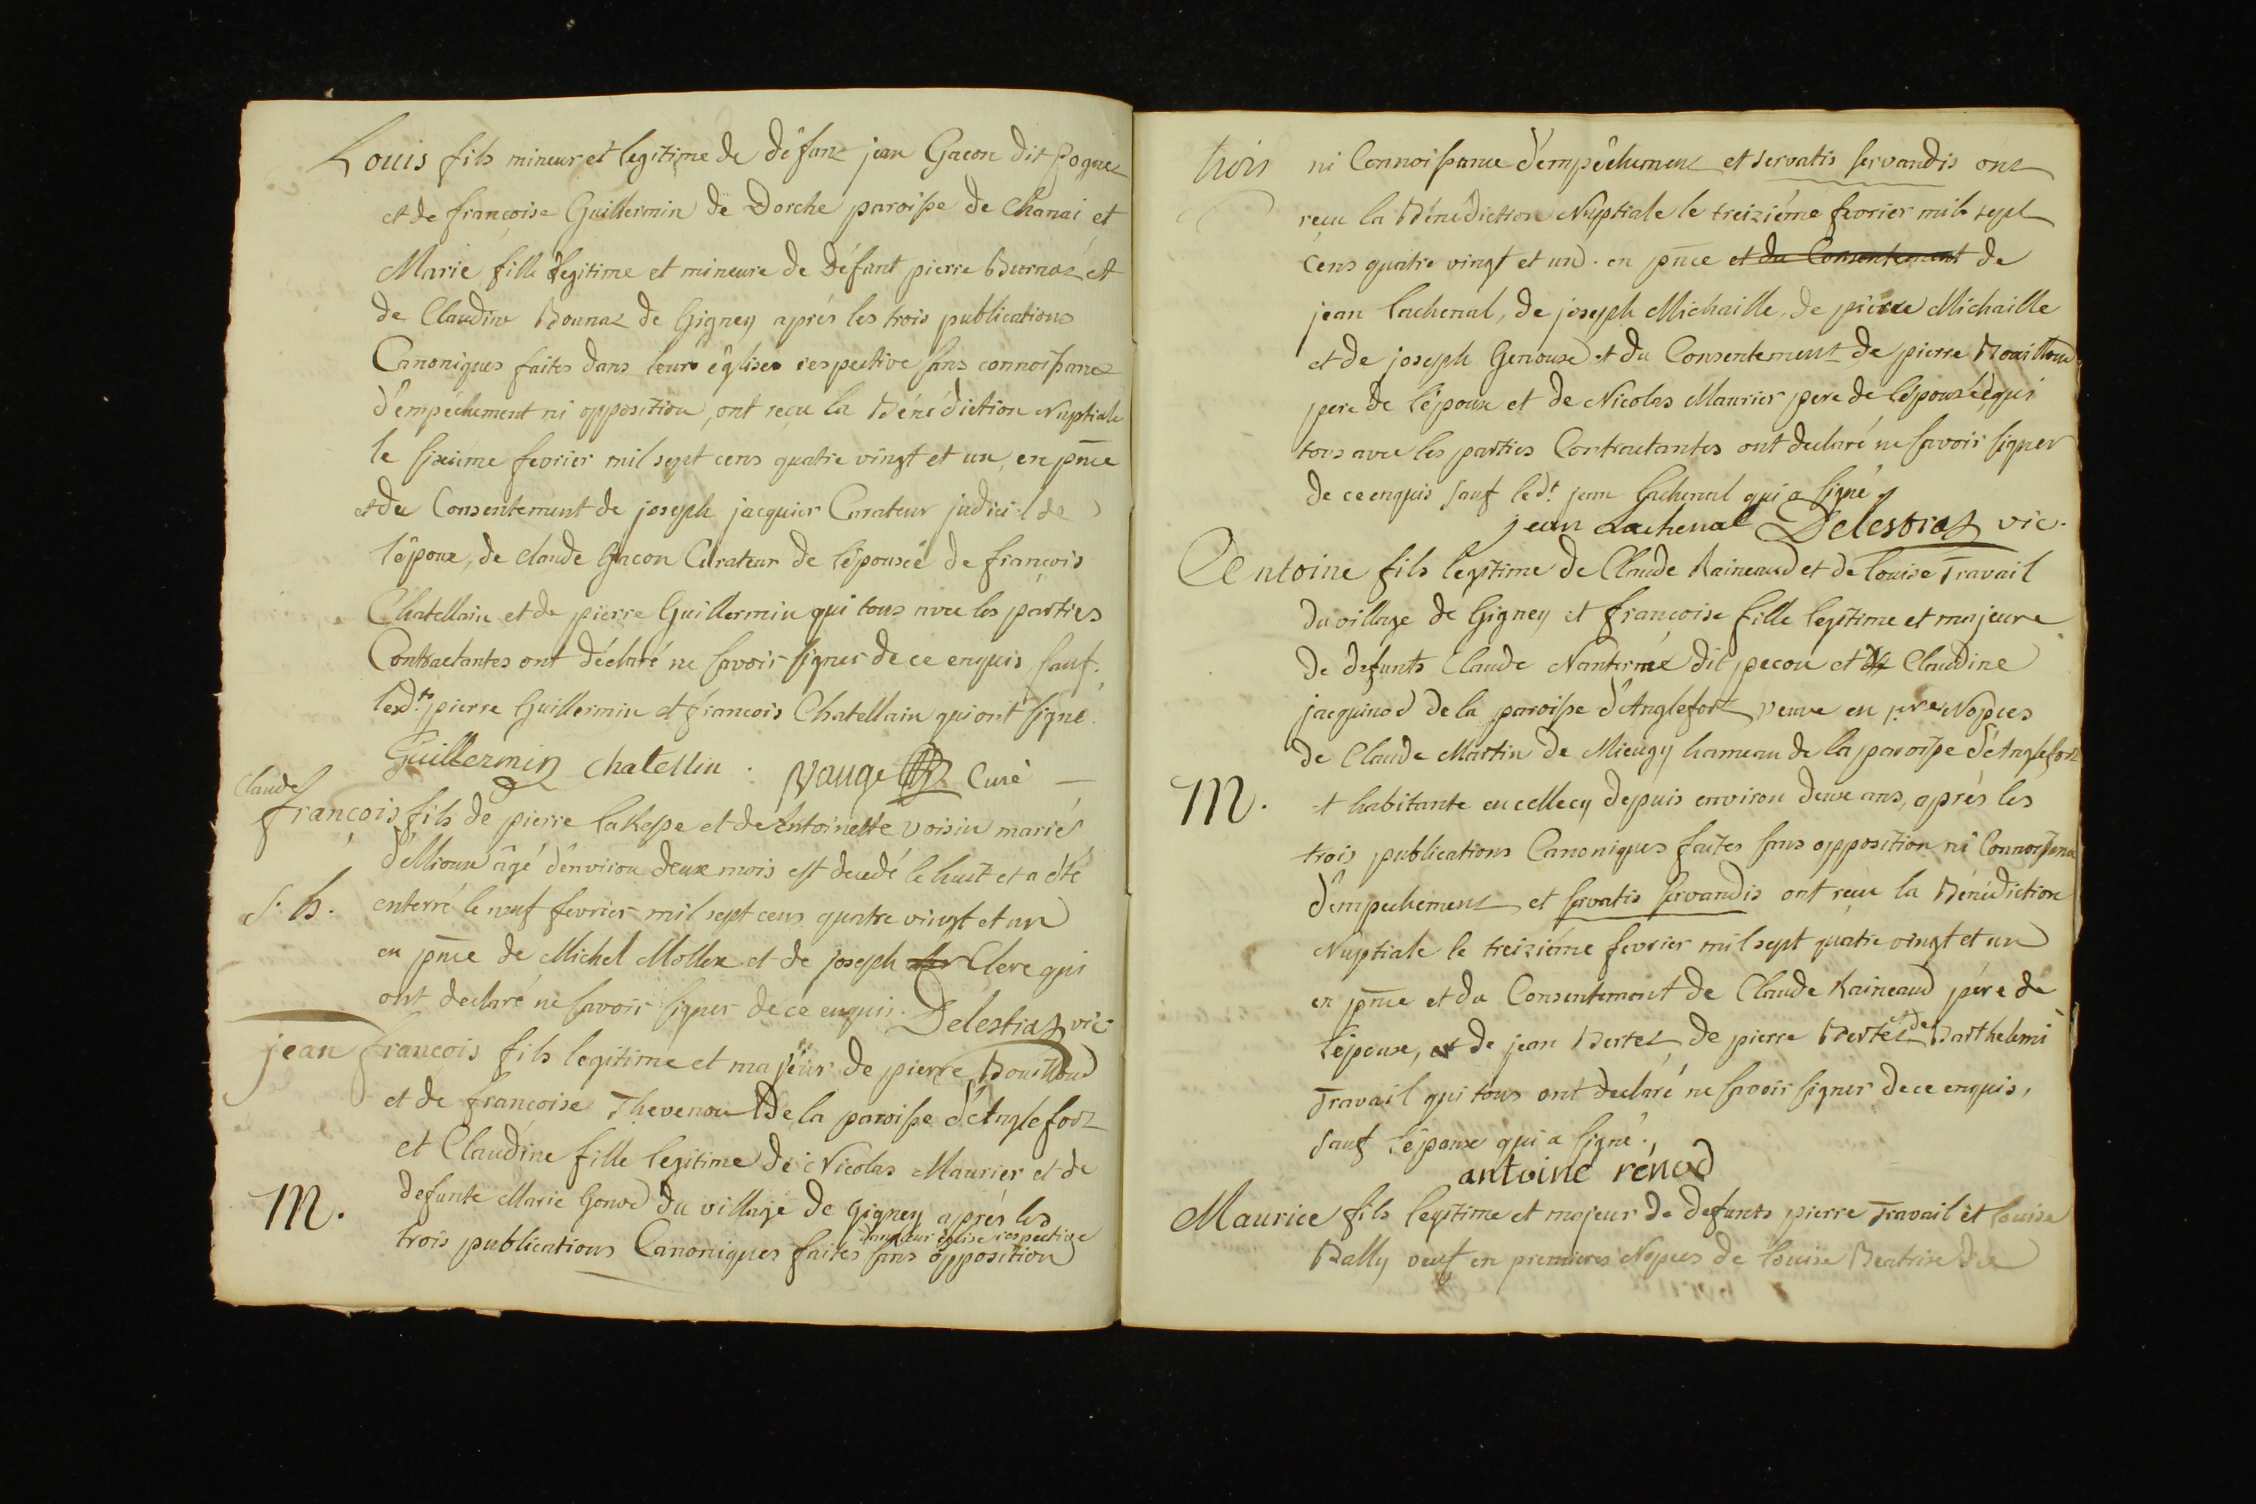 Louis fils mineur et legitime de défunt jean Gacon dit
et de françoise Guillermin de Dorche paroisse de Chanai et
Marie fille légitime et mineure de Défunt pierre Burnaz et
de Claudine Bonnaz de Gigney aprés les trois publications
Canoniques faites dans leurs églises respective sans connoissance
d'empéchement ni opposition, ont reçu la Bénédiction Nuptiale
le sixiéme fevrier mil sept cens quatre vingt et un, en pñce
et du Consentement de joseph jacquier Curateur judiciel de
l'époux, de claude Gacon Curateur de l'épousée de françois
Chatellain et de pierre Guillermin qui tous avec les parties
Contractantes ont déclaré ne savoir signer de ce enquis, sauf
lesdts pierre Guillermin et françois Chatellain qui ont signé.
Guillermin chatellin. Vauge Curé
Claude
françois fils de pierre laResse et de Antoinette voisin mariés
d'Mioux âgé d'environ deux mois est decedé le huit et a été
S. h. enterré le neuf fevrier mil sept cens quatre vingt et un
en pñce de Michel Mollex et de joseph Clerc qui
ont declaré ne savoir signer de ce enquis. Delestraz vic
jean françois fils legitime et majeur de pierre Bouilloud
et de françoise Thevenou de la paroisse d'Anglefort
et Claudine fille legitime de Nicolas Maurier et de
defunte Marie Gonod du village de Gigney aprés les
M.
dans leur église respective
trois publications Canoniques faites sans opposition
trois ni Connoissance d'empéchement et servatis servandis ont
reçu la Bénédiction Nuptiale le treiziéme fevrier mil sept
cens quatre vingt et un. en pñce et du Consentement de
jean lachenal, de joseph Michaille, de pierre Michaille
et de joseph Genoux et du Consentement de pierre Bouilloud
pere de l'époux et de Nicolas Maurier pere de l'épousée qui
tous avec les parties Contractantes ont declaré ne savoir signer
de ce enquis sauf ledt jean lachenal qui a signé
jean Lachenal Delestraz vic.
Antoine fils legitime de Claude Raineaud et de louise Travail
du village de Gigney et françoise fille legitime et majeure
de defunts Claude Nantermé dit pecou et Claudine
jacquinod de la paroisse d'Anglefort, veuve en pres Nopces
de Claude Martin de Mieugy hameau de la paroisse d'Anglefort
M. et habitante en depuis environ deux ans, aprés les
trois publications Canoniques faites sans opposition ni Connoissance
d'empechement et servatis servandis ont reçu la Bénédiction
Nuptiale le treiziéme fevrier mil sept quatre vingt et un
en pñce et du Consentement de Claude Raineaud pére de
l'époux, et de jean Bertet de pierre Bertet et de Barthelemi
Travail qui tous ont declaré ne savoir signer de ce enquis,
sauf l'époux qui a signé.
antoine rénod
Maurice fils legitime et majeur de defunts pierre Travail et louise
Bally veuf en premieres Nopces de louise Beatrix du